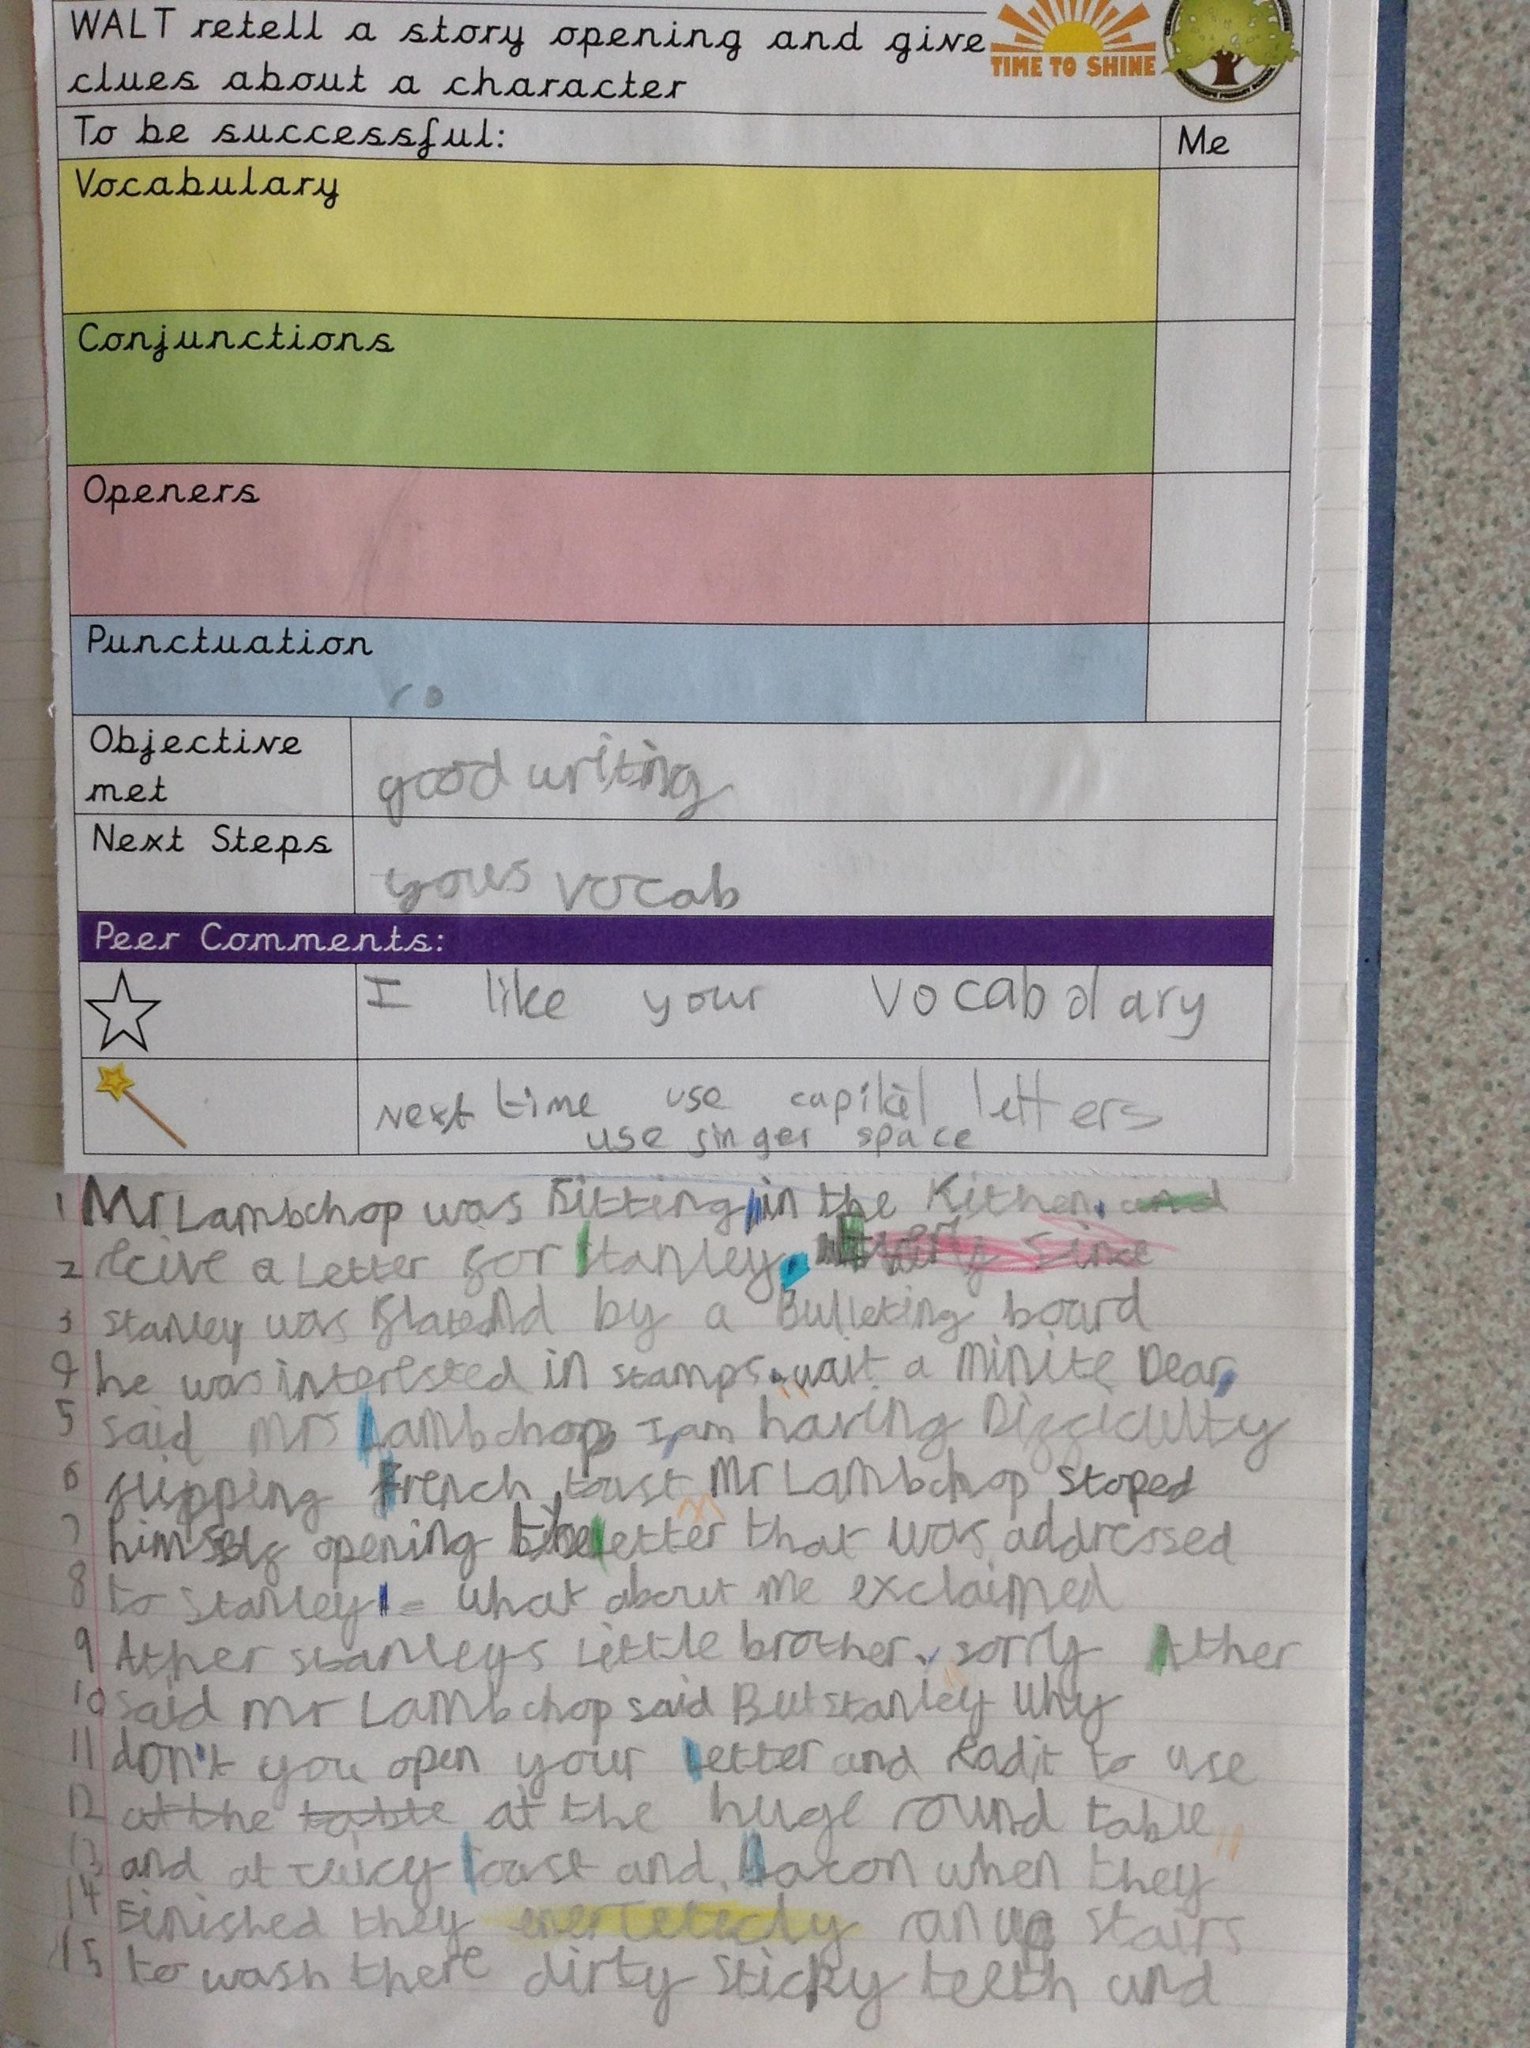 WALT retell a story opening and give
clues about a character
TIME TO SHINE
To be successful:
Me
Vocabulary
Conjunctions
Openers
Punctuation
Objective
met
good writing
Next Steps
yous vocab
Peer Comments:
I like your vocabolary
Next time use capitel letters
use finger space
1 Mr Lambchop was sitting in the Kithen, and
2 a Letter for Stanley.
3 Stanley was by a Bulleting board
4 he was interested in stamps. "wait a minite Dear,
5 said Mrs Lambchop I,am having Difficulty
6 flipping French toast" Mr Lambchop stoped
7 himself opening the letter that was addressed
8 to Stanley! = what about me exclaimed
9 Ather stanleys Little brother, sorry Ather
10 said mr Lambchop said But stanley Why
11 don't you open your letter and Radit to use
12 at the table at the huge round table"
13 and at Juicy toast and, bacon when they
14 Finished they enertetecly ran up stairs
15 to wash there dirty sticky teeth and